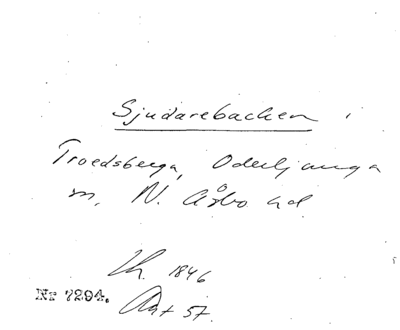 Sjudarebacken
Troedsberga, Oderljunga
m, N. Åsbo hd
Lk. 1846
Nr 7294. Akt 57.